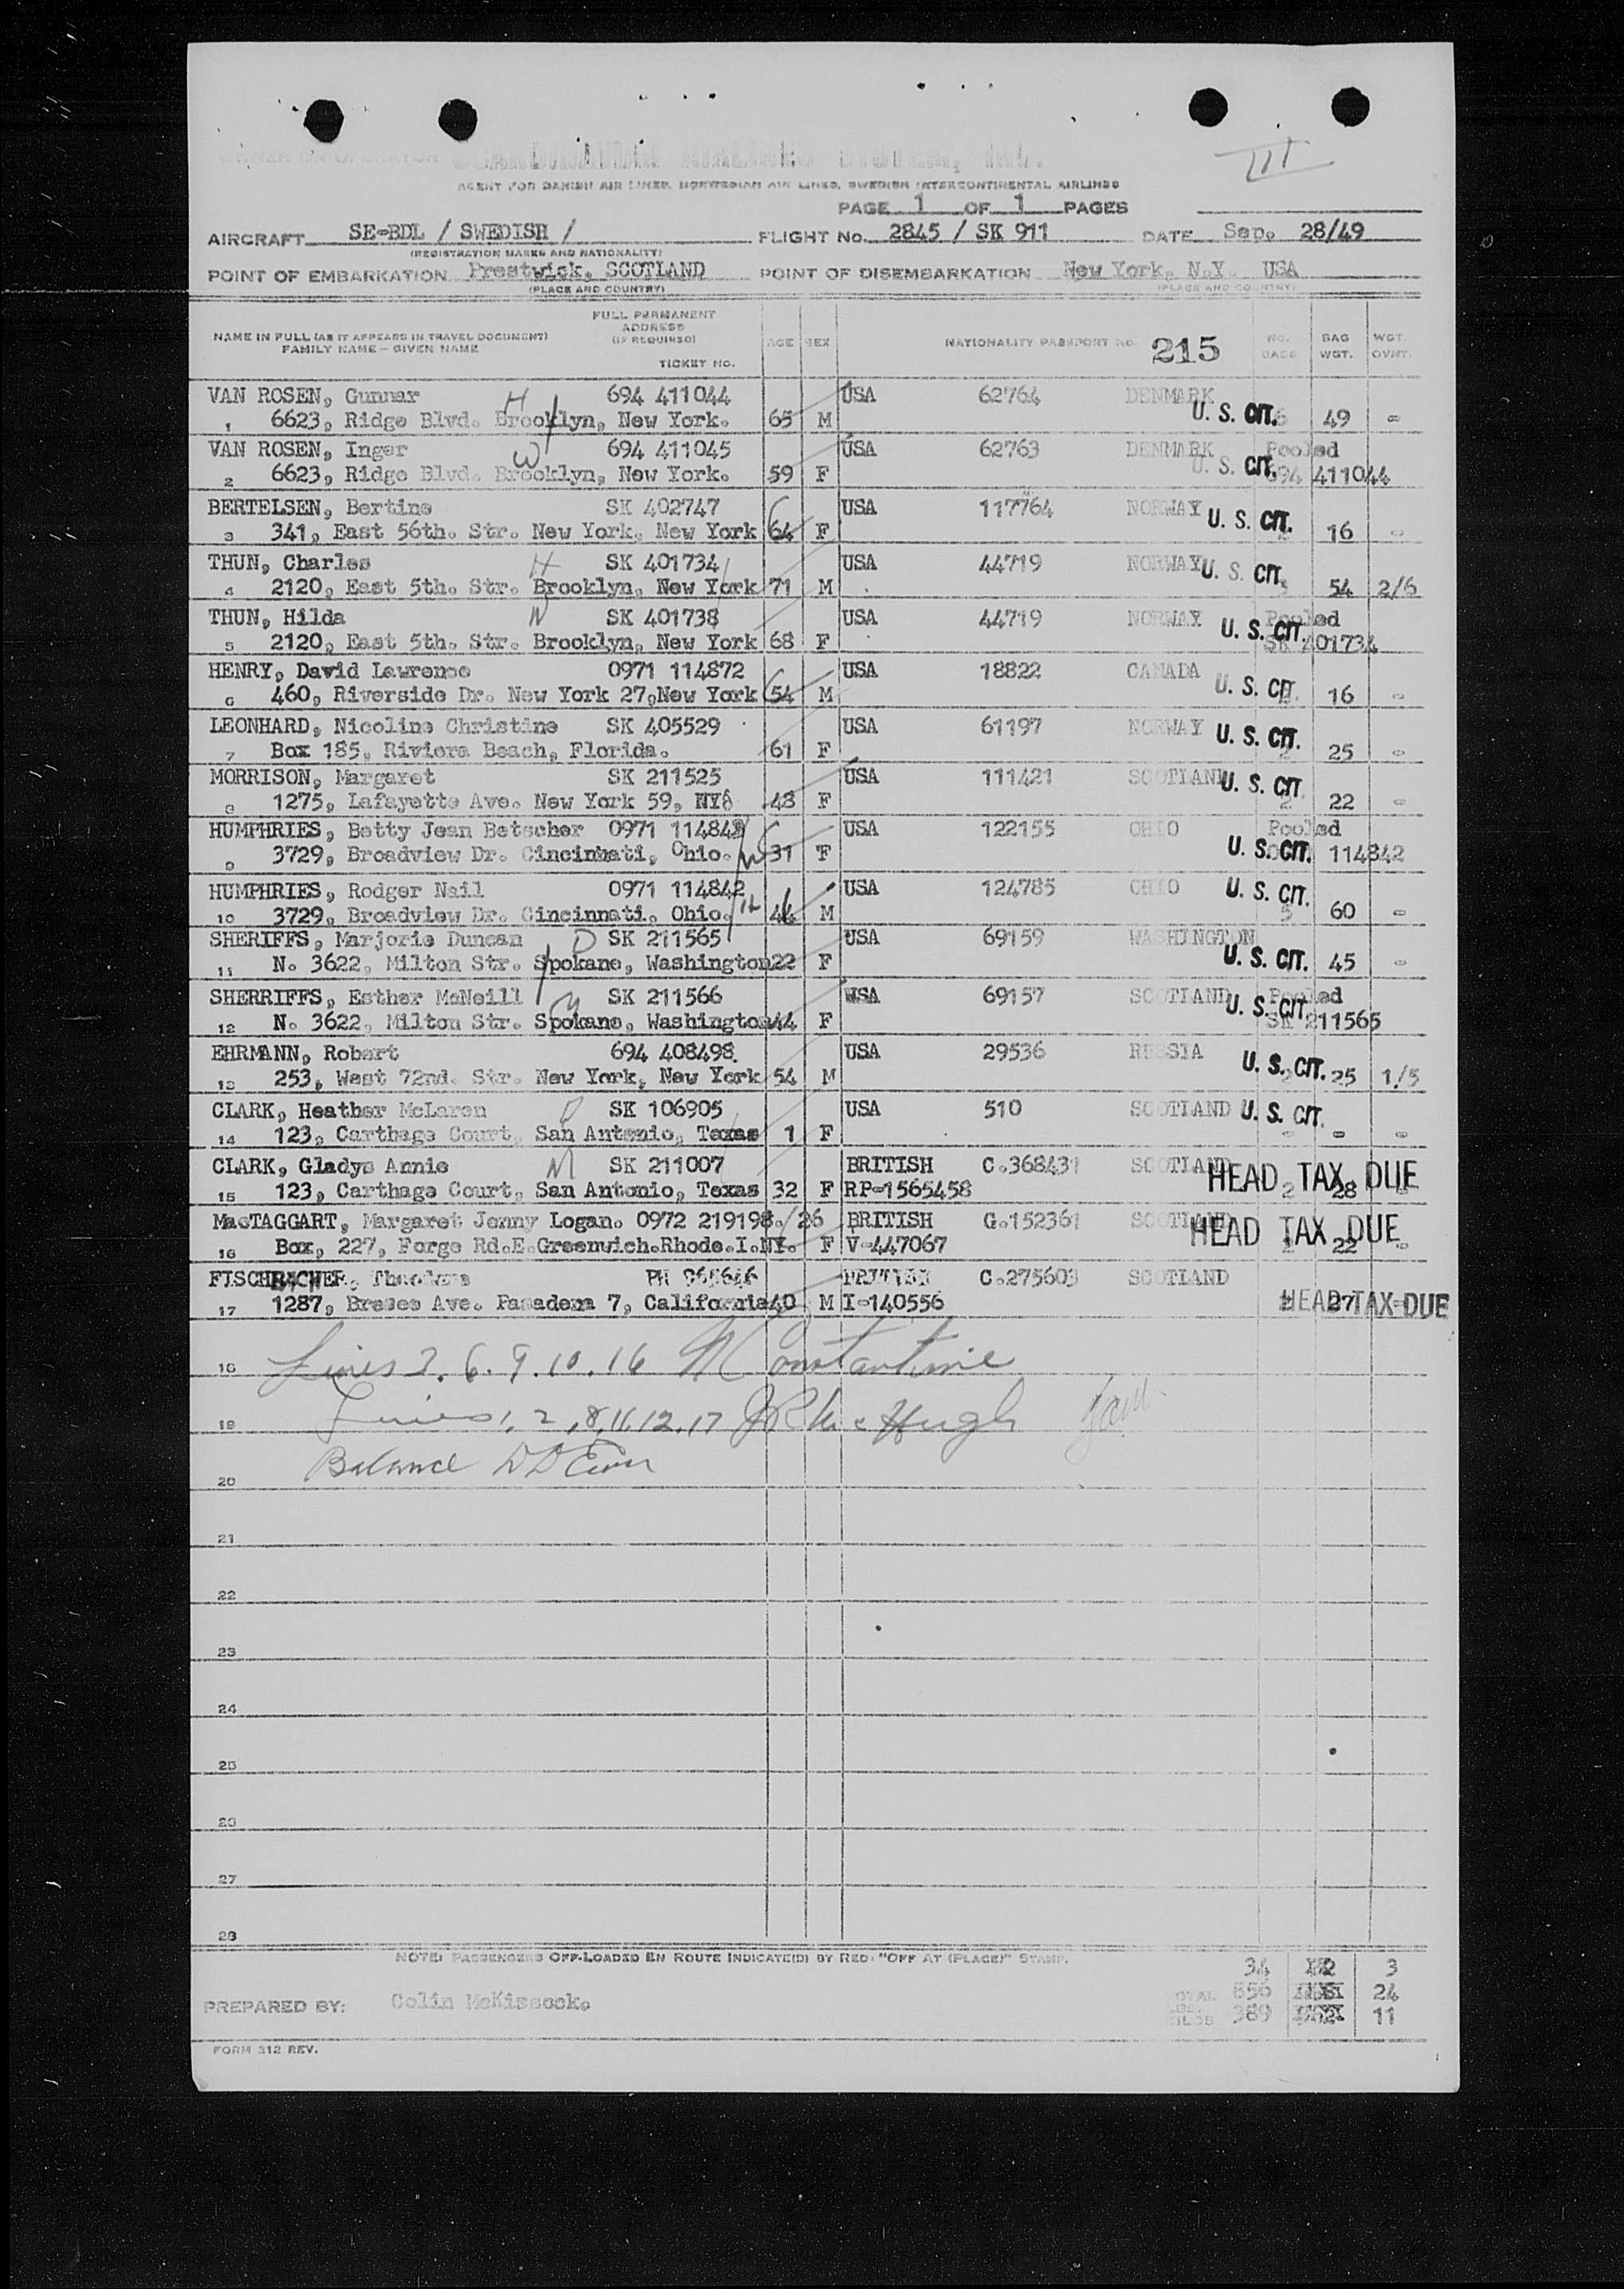 III
AGENT FOR DANISH AIR LINES, NORWEGIAN AIR LINES, SWEDISH INTERCONTINENTAL AIRLINES
PAGE 1 OF 1 PAGES
AIRCRAFT SE-BDL / SWEDISH / FLIGHT No. 2845 / SK 911 DATE Sep. 28/49
(REGISTRATION MARKS AND NATIONALITY)
POINT OF EMBARKATION Prestwick, SCOTLAND POINT OF DISEMBARKATION New York, N.Y. USA
(PLACE AND COUNTRY) (PLACE AND COUNTRY)
NAME IN FULL (AS IT APPEARS IN TRAVEL DOCUMENT) FAMILY NAME - GIVEN NAME FULL PERMANENT ADDRESS (IF REQUIRED) TICKET NO. AGE SEX NATIONALITY PASSPORT NO. 215 NO. BAGS BAG WGT. WGT. OVWT.
VAN ROSEN, Gunnar H 694 411044 USA 62764 DENMARK
1 6623, Ridge Blvd. Brooklyn, New York. 65 M U. S. CIT. 6 49 -
VAN ROSEN, Inger W 694 411045 USA 62763 DENMARK Pooled
2 6623, Ridge Blvd. Brooklyn, New York. 59 F U. S. CIT. 694 411044
BERTELSEN, Bertine SK 402747 USA 117764 NORWAY U. S. CIT.
3 341, East 56th. Str. New York, New York 64 F 16 -
THUN, Charles H SK 401734 USA 44719 NORWAY U. S. CIT.
4 2120, East 5th. Str. Brooklyn, New York 71 M 54 2/6
THUN, Hilda W SK 401738 USA 44719 NORWAY U. S. CIT. Pooled
5 2120, East 5th. Str. Brooklyn, New York 68 F SK 401734
HENRY, David Lawrence 0971 114872 USA 18822 CANADA U. S. CIT.
6 460, Riverside Dr. New York 27, New York 54 M 16 -
LEONHARD, Nicoline Christine SK 405529 USA 61197 NORWAY U. S. CIT.
7 Box 185, Riviera Beach, Florida. 61 F 2 25 -
MORRISON, Margaret SK 211525 USA 111421 SCOTLAND U. S. CIT.
8 1275, Lafayette Ave. New York 59, NY 48 F 2 22 -
HUMPHRIES, Betty Jean Betscher 0971 114843 USA 122155 OHIO Pooled
9 3729, Broadview Dr. Cincinnati, Ohio. W 31 F U. S. CIT. 114842
HUMPHRIES, Rodger Nail 0971 114842 USA 124785 OHIO U. S. CIT.
10 3729, Broadview Dr. Cincinnati, Ohio. H 46 M 5 60 -
SHERIFFS, Marjorie Duncan D SK 211565 USA 69159 WASHINGTON
11 N. 3622, Milton Str. Spokane, Washington 22 F U. S. CIT. 45 -
SHERRIFFS, Esther McNeill M SK 211566 USA 69157 SCOTLAND U. S. CIT. Pooled
12 N. 3622, Milton Str. Spokane, Washington 44 F SK 211565
EHRMANN, Robert 694 408498. USA 29536 RUSSIA U. S. CIT.
13 253, West 72nd. Str. New York, New York 54 M 2 25 1/5
CLARK, Heather McLaren D SK 106905 USA 510 SCOTLAND U. S. CIT.
14 123, Carthage Court, San Antonio, Texas 1 F - - -
CLARK, Gladys Annie M SK 211007 BRITISH C.368431 SCOTLAND HEAD TAX DUE
15 123, Carthage Court, San Antonio, Texas 32 F RP-1565458 2 28 -
MacTAGGART, Margaret Jenny Logan. 0972 219198. 26 BRITISH G.152361 SCOTLAND HEAD TAX DUE
16 Box, 227, Forge Rd.E.Greenwich.Rhode.I.NY. F V-447067 2 22 -
Theodore C.275603 SCOTLAND
17 1287, Breses Ave. Pasadena 7, California 40 M I-140556 27 HEAD TAX DUE
18 Lines 3. 6. 9. 10. 16 M Constantine
19 Lines 1, 2, 8, 11, 12, 17 J R McHugh
20 Balance
21
22
23
24
25
26
27
28
NOTE: PASSENGERS OFF-LOADED EN ROUTE INDICATE(D) BY RED: "OFF AT (PLACE)" STAMP.
34 3
PREPARED BY: Colin McKissock. TOTAL LBS. 856 24
KILOS 389 11
FORM 312 REV.